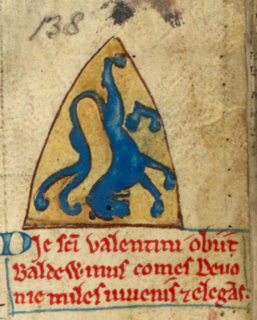 138
Die scī valentini obiit
Baldewinus comes Devo
nie miles iuvenis ⁊ elegās.